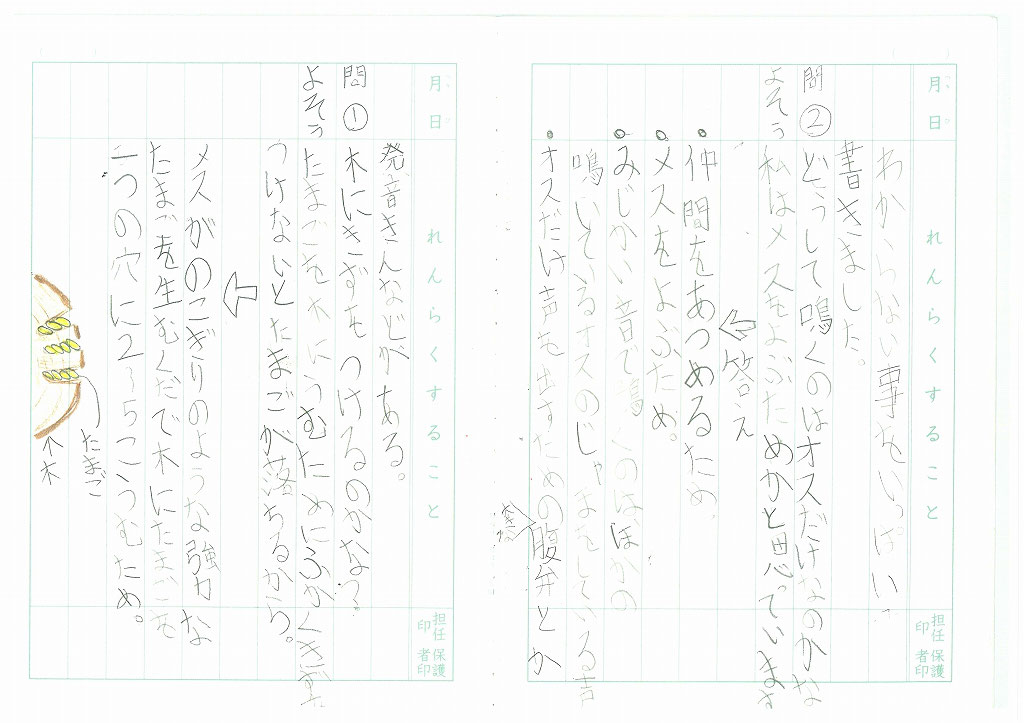 月 日
れんらくすること
担任印
保護者印
わからない事をいっぱい
書きました。
問② どうして鳴くのはオスだけなのかな
よそう 私はメスをよぶためかと思っています
答え
・仲間をあつめるため。
・メスをよぶため。
・みじかい音で鳴くのは、ほかの
鳴いているオスのじゃまをしている声
・オスだけ声を出すための腹弁とか
月 日
れんらくすること
担任印
保護者印
発音きんなどがある。
問① 木にきずをつけるのかな?
よそう たまごを木にうむためにふかくきずを
つけないとたまごが落ちるから。
メスがのこぎりのような強力な
たまごを生むくだで木にたまごを
一つの穴に2～5こうむため。
たまご
↑木